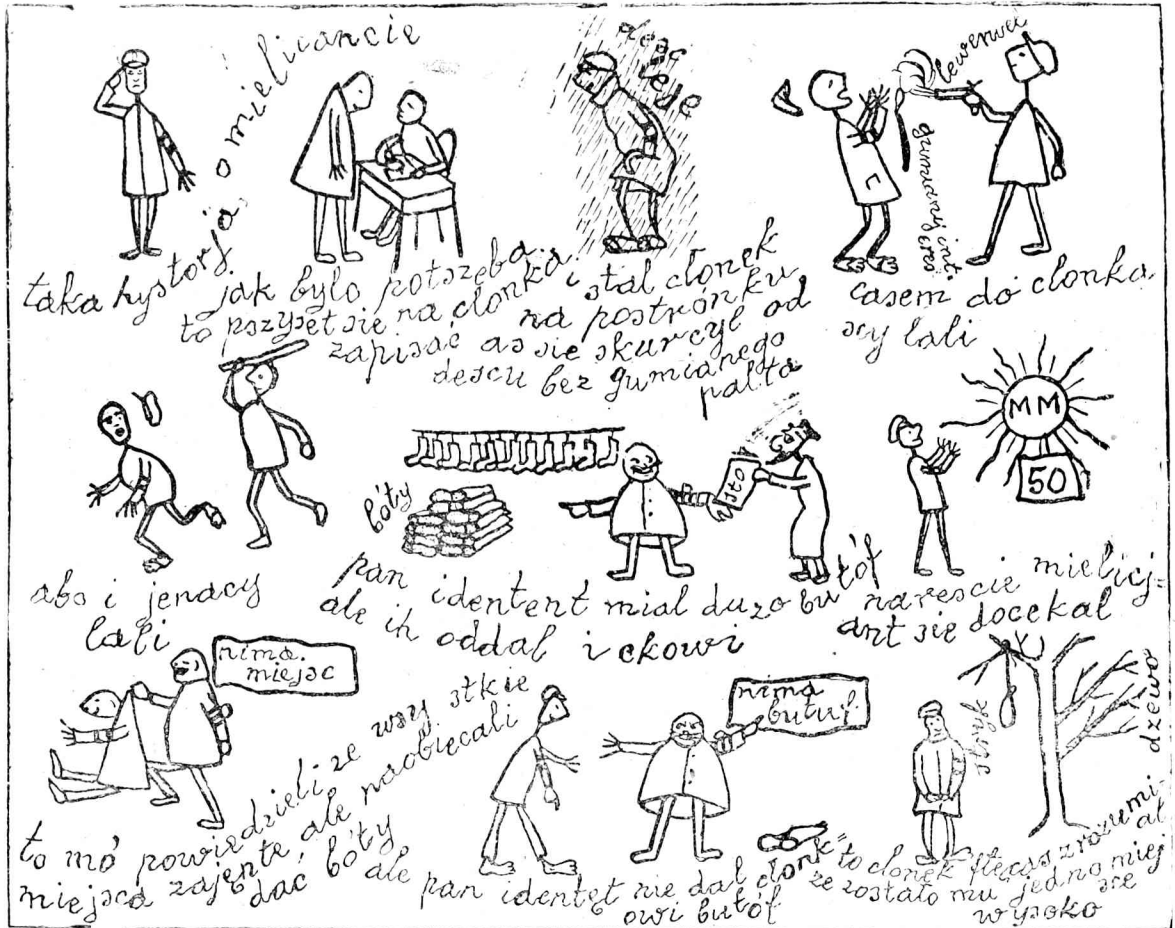 taka hystorja o mielicancie
jak było potszeba
to pszyset sie na członka
zapisać
desc leje
i stal clonek
na postronku
as sie skurcyl od
descu bez gumianego
palta
lewerwer
gumianyj int
casem do clonka
scy lali
abo i jenacy
lali
bóty
sto
pan identent mial duzo butóf
ale ih oddal ickowi
MM
50
narescie mielicj=
ant sie docekal
nima
miejsc
to mó powiedzieli ze wszystkie
miejsca zajente ale naobiecali
dać bóty
nima
butuf
ale pan identęt nie dal clonk=
owi butóf
stryk
dzewo
to clonek ftecas zrozumi-
al
ze zostało mu jedno miej
sce
wysoko